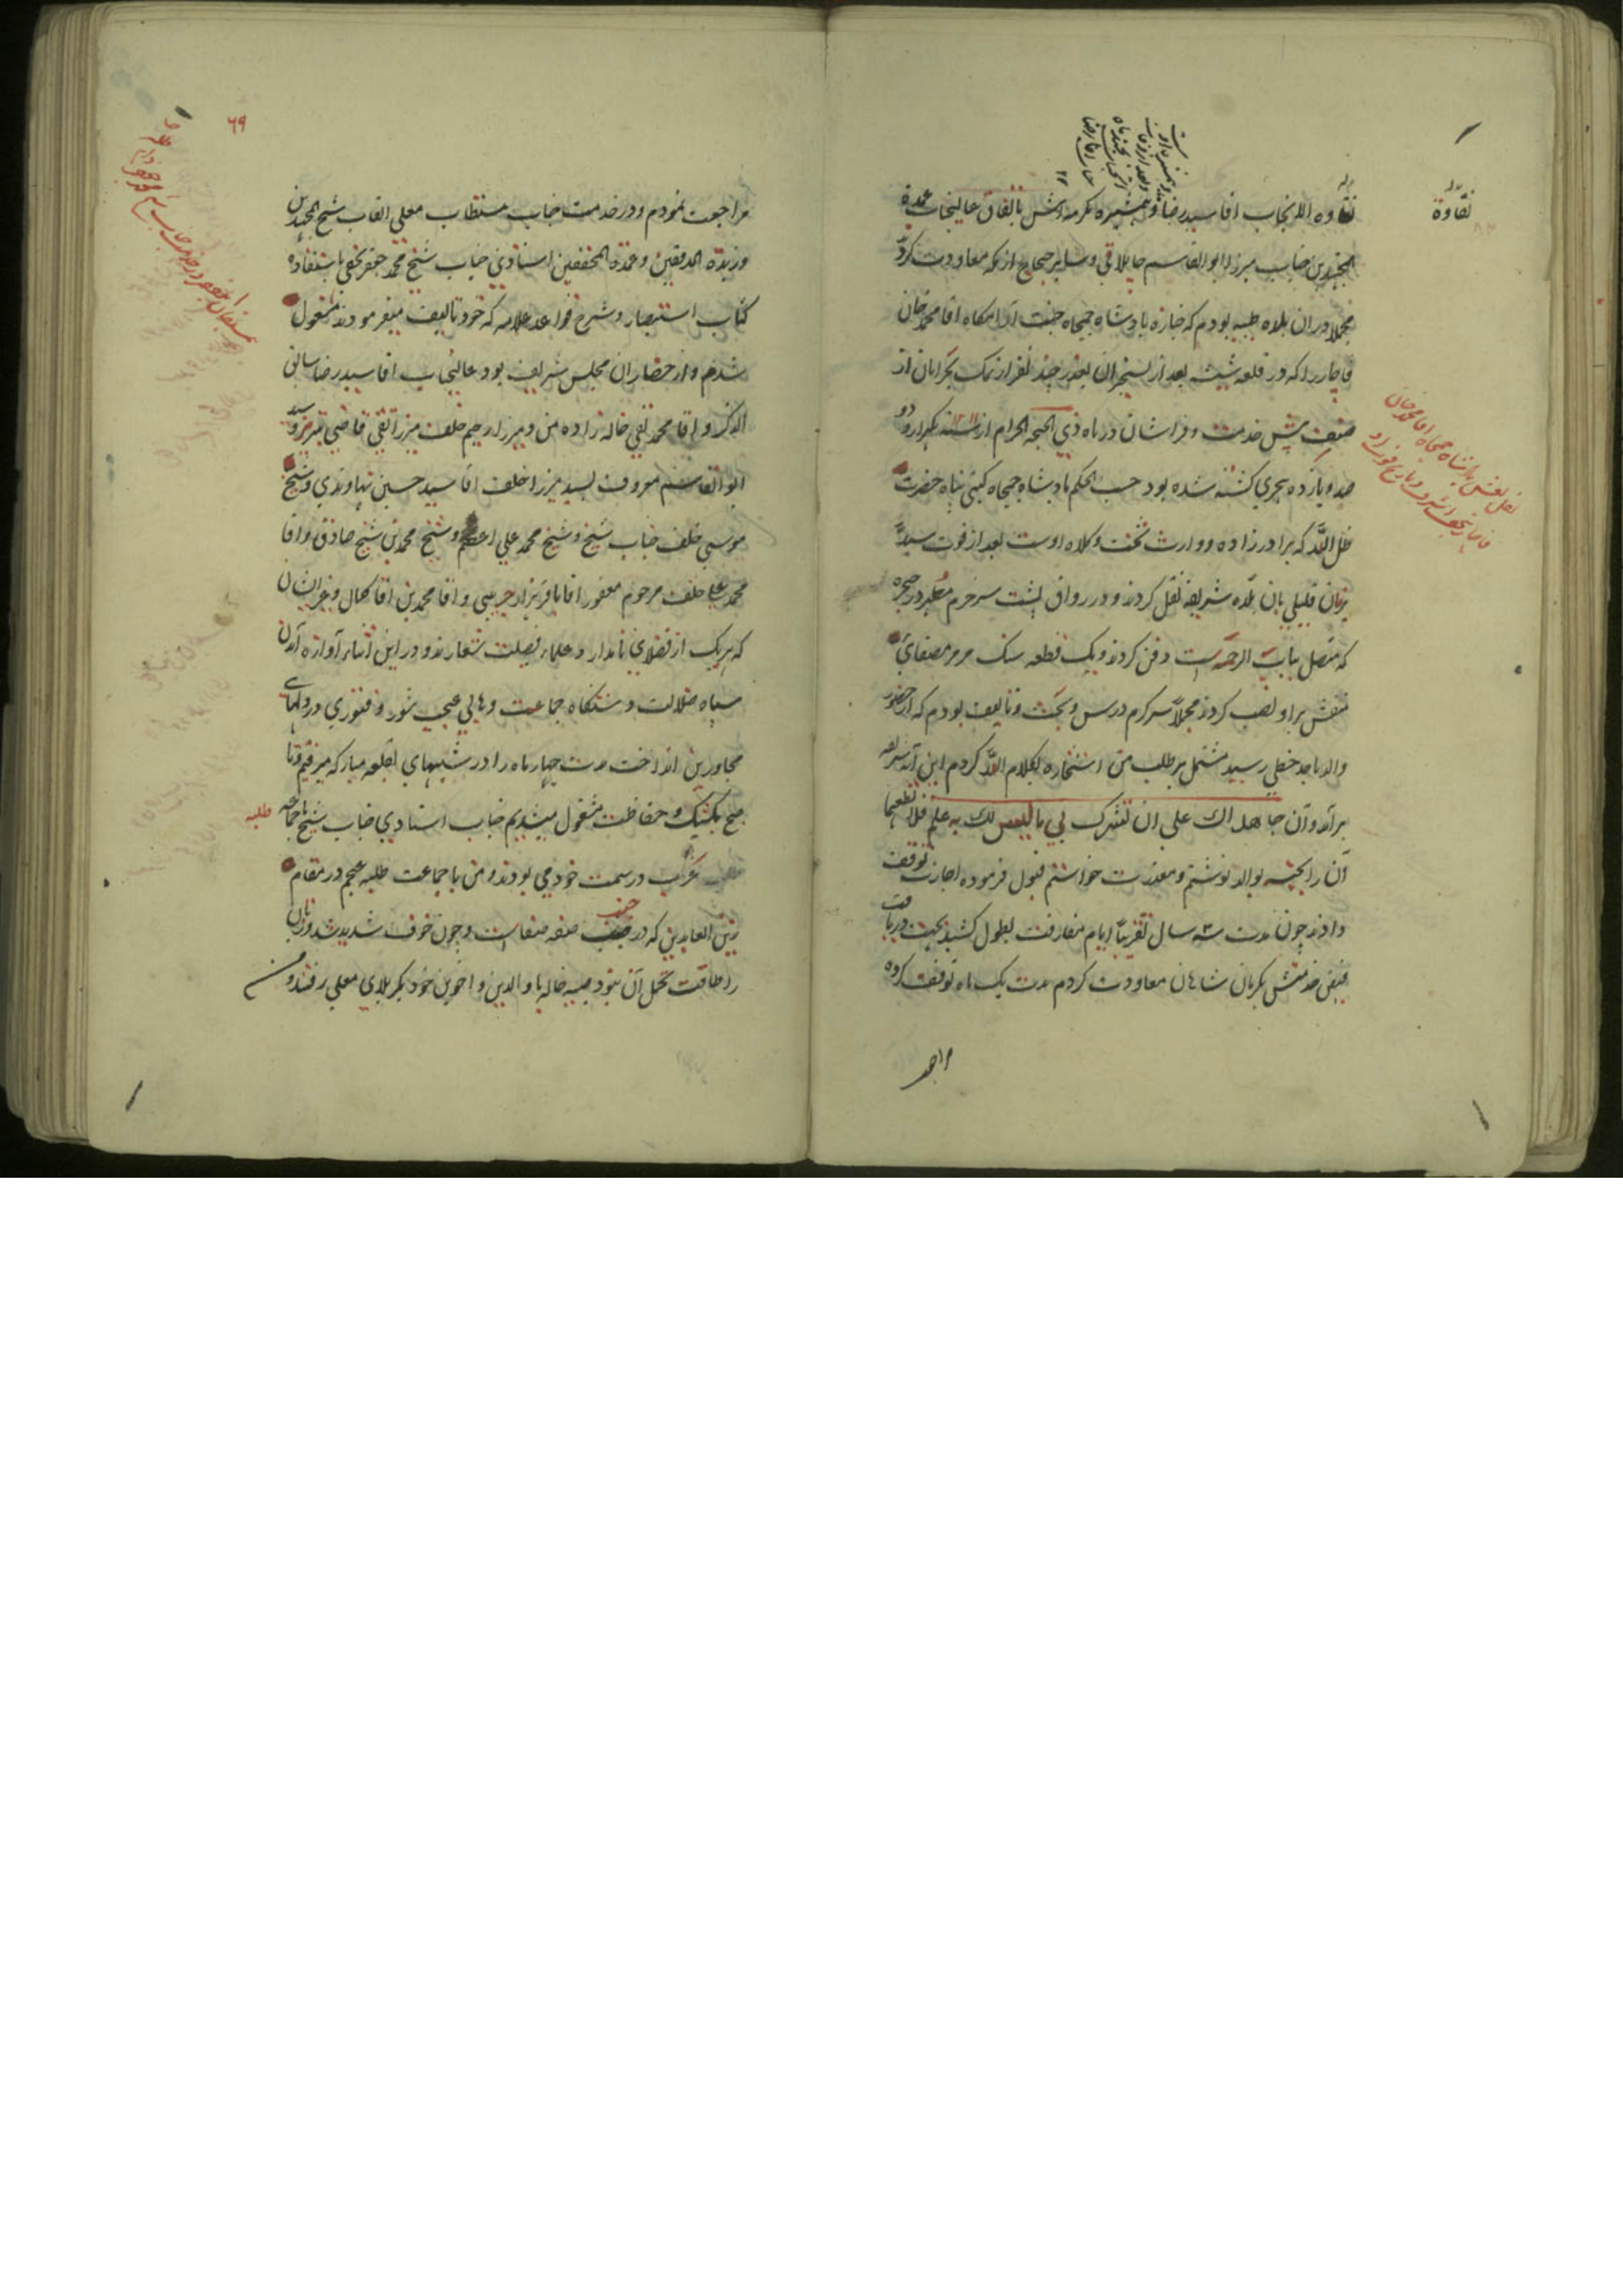 نقاوه الانجاب اقا سید رضا و همشیره مکرمه اش باتفاق عالیجناب عمدة
المجتهدین جناب میرزا ابو القاسم جابلاقی و سایر حجاج از مکه معاودت کرد
مجملا در ان بلاده طیبه بودم که جنازه پادشاه جمجاه جنت آرامکاه اقا محمد خان
قاجار را که در قلعه شیشه بعد از تسخیر ان بغدر چند نفر از نمک بحرامان از
صنف پیش خدمت و فراشان در ماه ذی الحجه الحرام از سنه ۱۲۱۱ یکهزار و دو
صد و یازده هجری کشته شده بود حسب الحکم پادشاه جمجاه کیتی پناه حضرت
ظل اللّه که برادر زاده و وارث تخت و کلاه اوست بعد از فوت سید
بزمان قلیلی بان بلاده شریفه نقل کردند و در رواق پشت سر حرم مطهر در حجره
که متصل بباب الرحمه است دفن کردند و یک قطعه سنک مرمر مصفای
منقش بر او نصب کردند مجملاً سرکرم درس و بحث و تالیف بودم که از حضور
والد ماجد خطی رسید مشتمل بر طلب من استخاره بکلام اللّه کردم این آیه شریفه
بر آمد وآن جاهداک علی ان تشرک بی ما لیس لک به علم فلا تطعهما
آن را بجنسه بوالد نوشتم و معذرت خواستم قبول فرموده اجازت توقف
دادند چون مدت سه ۳ سال تقریباً ایام مفارقت بطول کشید بجهت دریافت
فیض خدمتش بکرمان شاهان معاودت کردم مدت یک ماه توقف کرده
مراجعـ
نقاوة
نقل نعش پادشاه جمجاه اقا محمد خان
قاجار بنجف اشرف و تاریخ فوت او
۶۹
مراجعت نمودم و در خدمت جناب مستطاب معلی القاب شیخ المجتهدین
و زبدة المدققین و عمدة المحققین استادی جناب شیخ محمد جعفر نجفی باستفاده
کتاب استبصار و شرح قواعد علامه که خود تالیف میفرمودند مشغول
شدم و از حضار ان مجلس شریف بود عالیجناب اقا سید رضا سابق
الذکر و اقا محمد تقی خاله زاده من و میرزا رحیم خلف میرزا تقی قاضی تبریز و سید
ابو القاسم معروف بسید میرزا خلف اقا سید حسین نهاوندی و شیخ
موسی خلف جناب شیخ و شیخ محمد علی اعسم و شیخ محمد بن شیخ صادق و اقا
محمد علی خلف مرحوم مغفور اقا باقر هزار جریبی و اقا محمد بن اقا کمال و غیر ایشان
که هر یک از فضلای نامدار و علماء فضیلت شعارند و در این اثناء آوازه آمدن
سپاه ضلالت دستکاه جماعت وهابی عجب شور و فتوری در دلهای
مجاورین انداخت مدت چهار ماه را در شبهای بقلعه مبارکه میرفتیم و تا
صبح بکشیک و حفاظت مشغول میشدیم جناب استادی جناب شیخ با جماعه
طلبه
عرب در سمت خود می بودند و من با جماعت طلبه عجم در مقام
زین العابدین که در جنب صفه صفاست و چون خوف شدید شد و زنان
را طاقت تحمل آن نبود صبیه خاله با والدین و اخوین خود بکربلای معلی رفتند و من